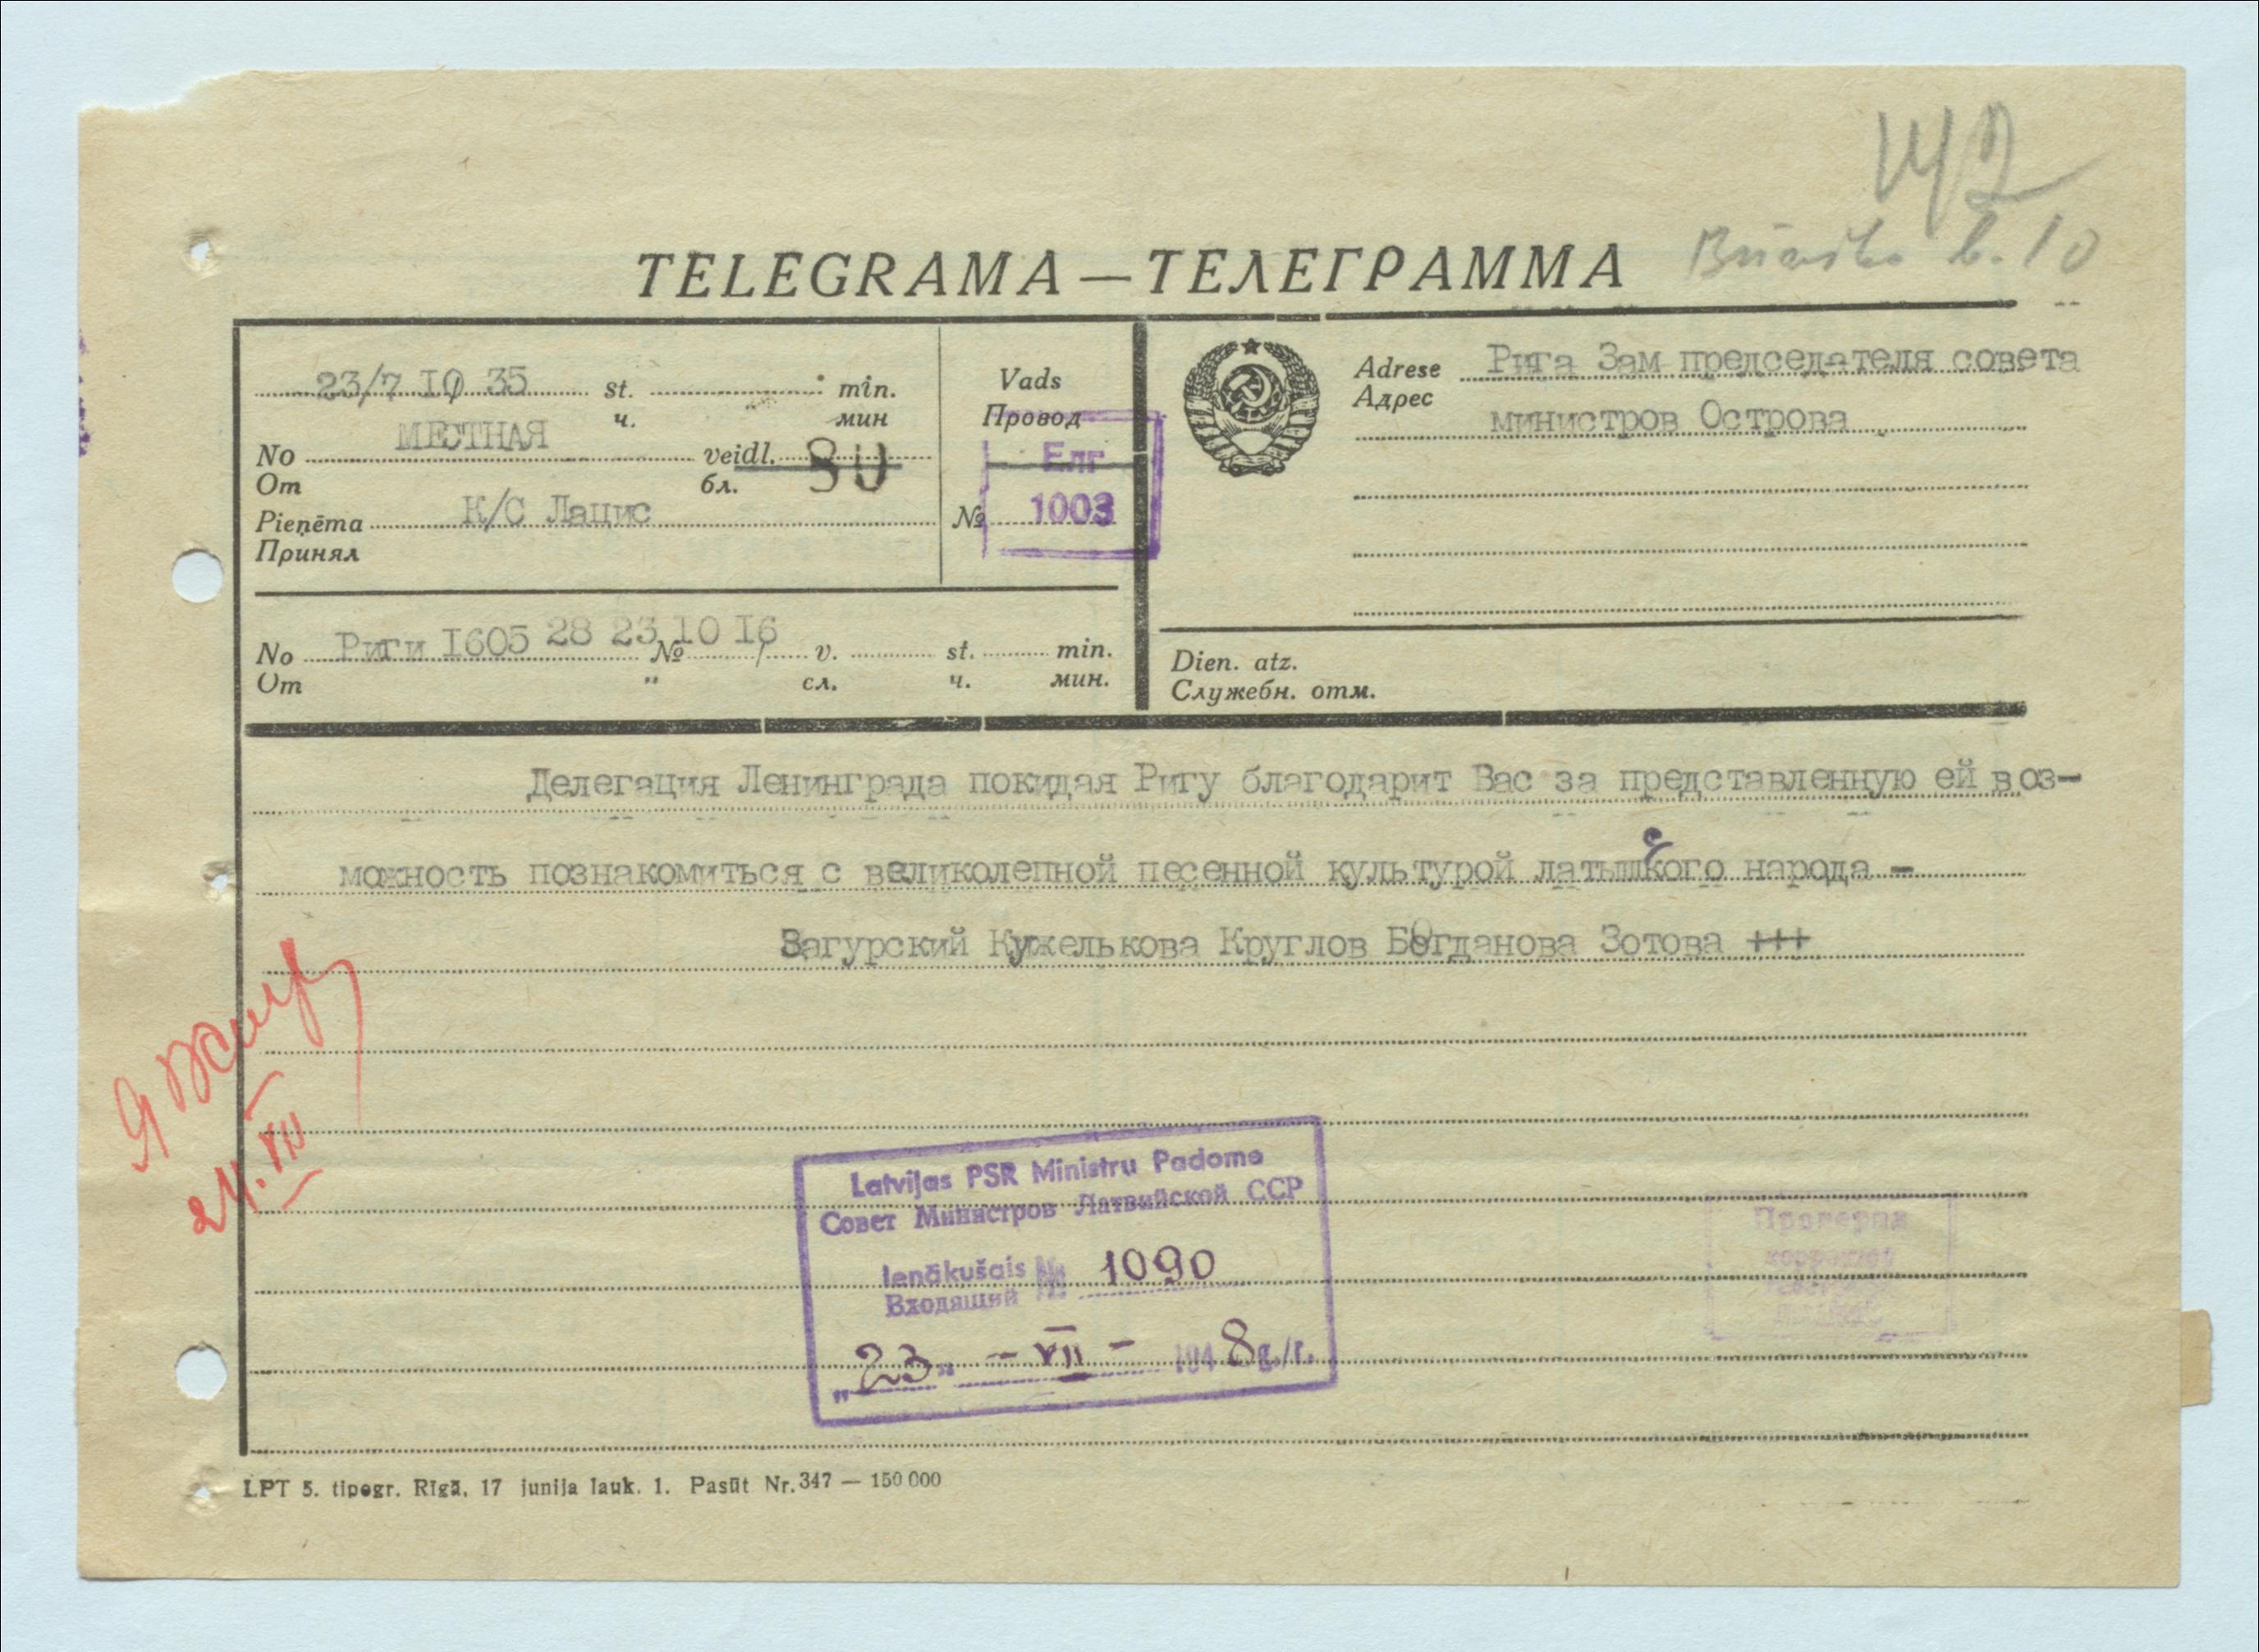 TELEGRAMA — ТЕЛЕГРАММА
в. 10
23/7 10 35 st. min.
ч. мин
МЕСТНАЯ
No veidl. 80
От бл.
Pieņēma К/С Лацис
Принял
Vads
Провод
Елг
№ 1003
No Риги I605 28 23 10 I6 № v. st. min.
От " сл. ч. мин.
Adrese Рига Зам председателя совета
Адрес
министров Острова
Dien. atz.
Служебн. отм.
Делегация Ленинграда покидая Ригу благодарит Вас за представленную ей воз-
можность познакомиться с великолепной песенной культурой латышского народа -
Загурский Кужелькова Круглов Богданова Зотова +++
24.VII
Latvijas PSR Ministru Padome
Совет Министров Латвийской ССР
Ienākušais № 1090
Входящий №
„23" - VII - 1948 g./г.
Проверил
LPT 5. tipogr. Rīgā, 17 junija lauk. 1. Pasūt Nr. 347 — 150 000